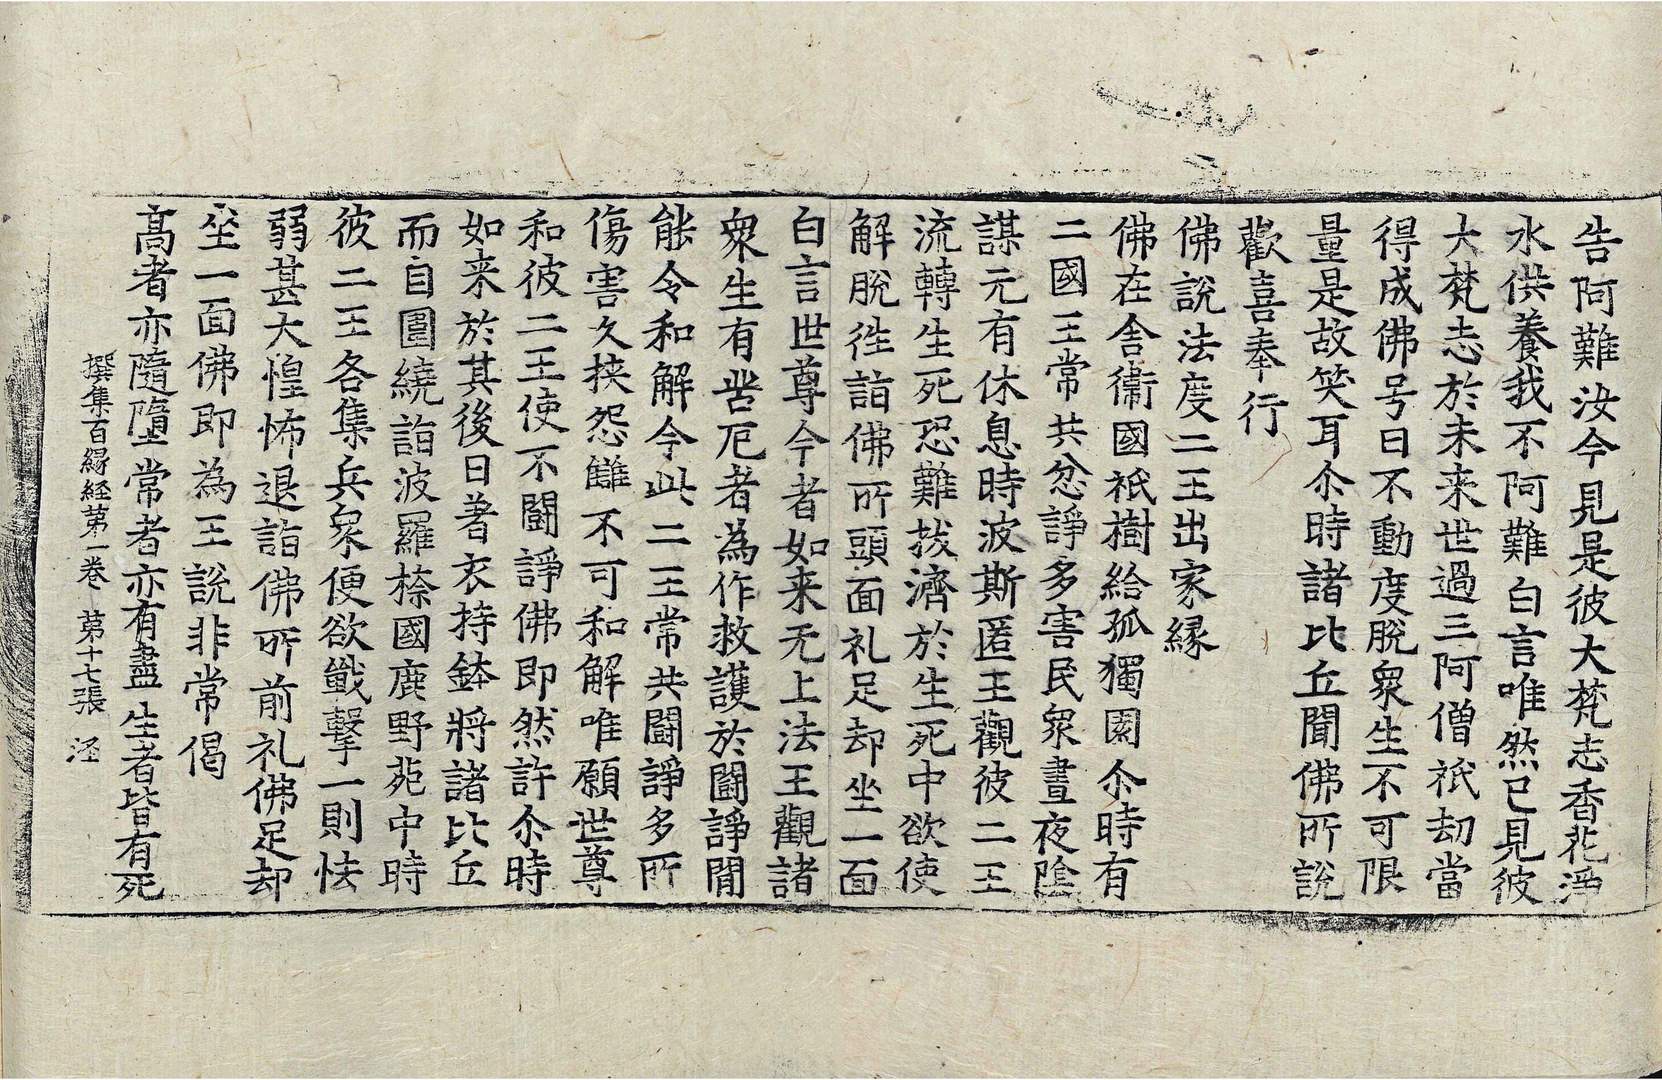 告阿難汝今見是彼大梵志香花淨
水供養我不阿難白言唯然已見彼
大梵志於未来世過三阿僧祇劫當
得成佛号曰不動度脫衆生不可限
量是故笑耳尒時諸比丘聞佛所說
歡喜奉行
佛說法度二王出家縁
佛在舍衛國祇樹給孤獨園尒時有
二國王常共忿諍多害民衆晝夜陰
謀元有休息時波斯匿王觀彼二王
流轉生死恐難拔濟於生死中欲使
解脫徃詣佛所頭面礼足却坐一面
白言世尊今者如来无上法王觀諸
衆生有苦厄者為作救護於闘諍閒
能令和解今此二王常共闘諍多所
傷害久挾怨讎不可和解唯願世尊
和彼二王使不闘諍佛即然許尒時
如来於其後日著衣持鉢將諸比丘
而自圍繞詣波羅㮈國鹿野苑中時
彼二王各集兵衆便欲戰擊一則怯
弱甚大惶怖退詣佛所前礼佛足却
坐一面佛即為王說非常偈
高者亦隨墮常者亦有盡生者皆有死
撰集百縁経第一卷 第十七張 泾